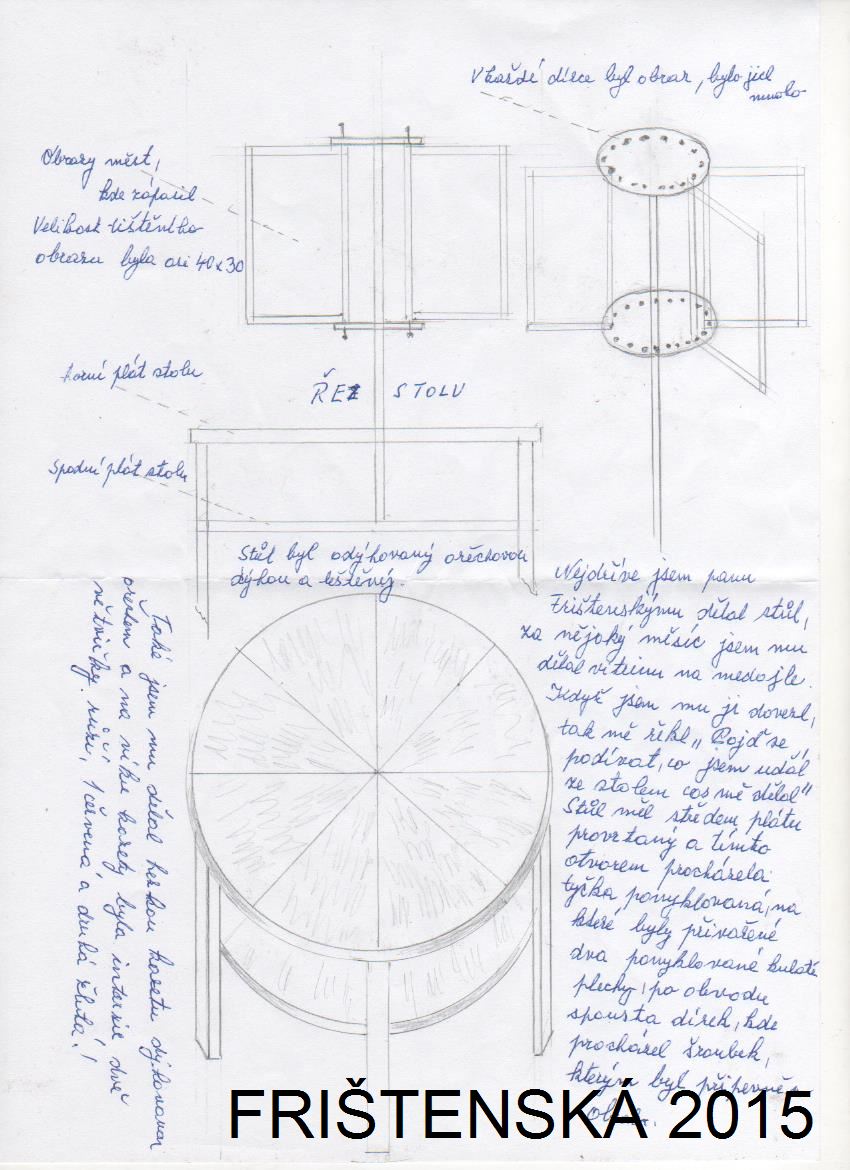 V každé dírce byl obraz, bylo jich
mnoho
Obrazy měst,
kde zápasil
Velikost tištěního
obrazu byla asi 40x30
horní plát stolu
ŘEZ STOLU
Spodní plát stolu
Stůl byl odýhovaný ořechovou
dýhou a leštěný.
Nejdříve jsem panu
Frištenskýmu dělal stůl,
za nějaký měsíc jsem mu
dělal vitrinu na medajle.
Když jsem mu ji dovezl,
tak mě řekl „Pojď se
podívat, co jsem uděl
ze stolem cos mě dělal"
Stůl měl středem plátu
provrtaný a tímto
otvorem procházela
tyčka ponyklovaná, na
které byly přivařené
dva ponyklované kulaté
plechy, po obvodu
spousta dírek, kde
procházel šroubek,
kterým byl připevně
Také jsem mu dělal hezkou kazetu dýhovanou
ořechem a na víku kazety byla intarzie dvě
větvičky růží, 1 červená a druhá žlutá!
FRIŠTENSKÁ 2015